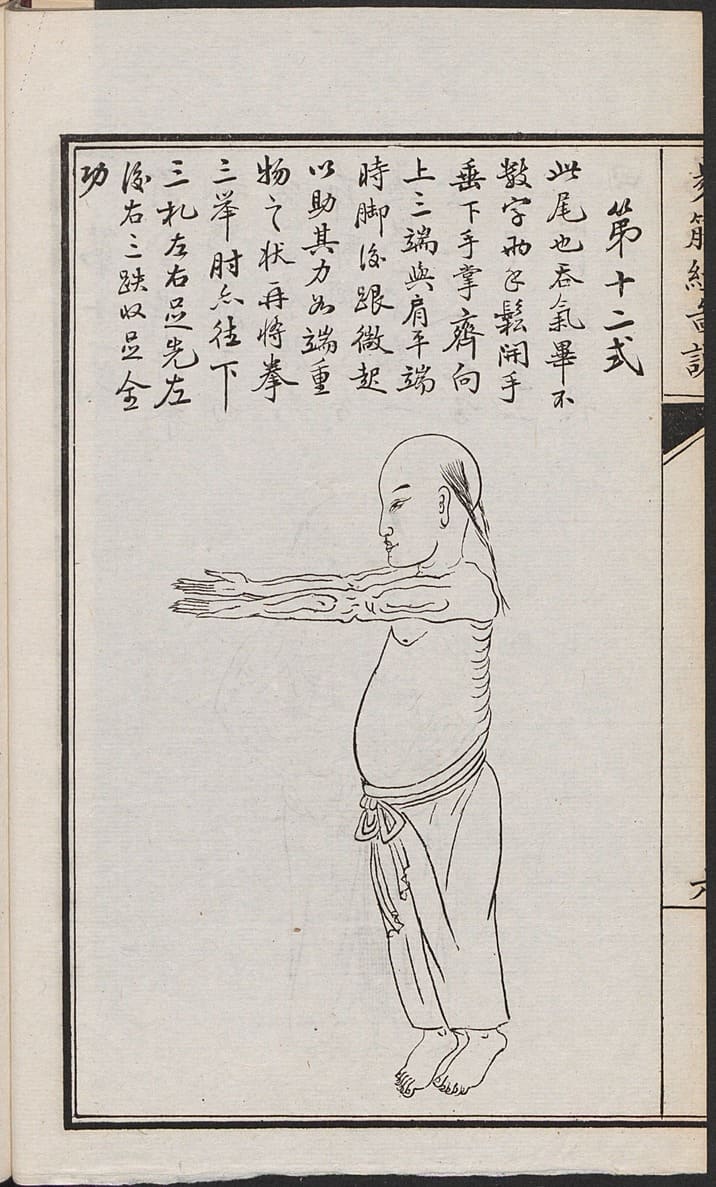 第十二式
此尾也吞氣畢不
數字兩手鬆開手
垂下手掌齊向
上三端與肩平端
時脚後跟微起
以助其力如端重
物之状再將拳
三举肘亦往下
三札左右足先左
後右三跌收足全
功
易筋經啚說
六